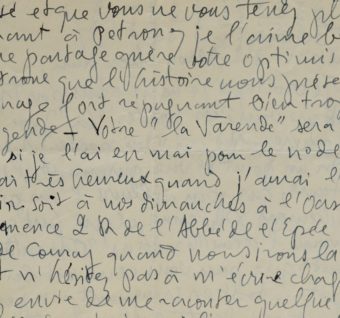 et que vous ne vous tenez pl
à Potron, je l'aime b
ne partage guère votre optimis
que l'histoire nous prése
nage fort répugnant bien tro
gende - Votre "la Varende" sera
si je l'ai en mai pour le n° de
très heureux quand j'aurai l
soit à nos dimanches à l'Oas
mence 2 R de l'Abbé de l'Epée
de Courcy quand nous irons la
n'hésitez pas à m'écrire chaq
envie de me raconter quelque